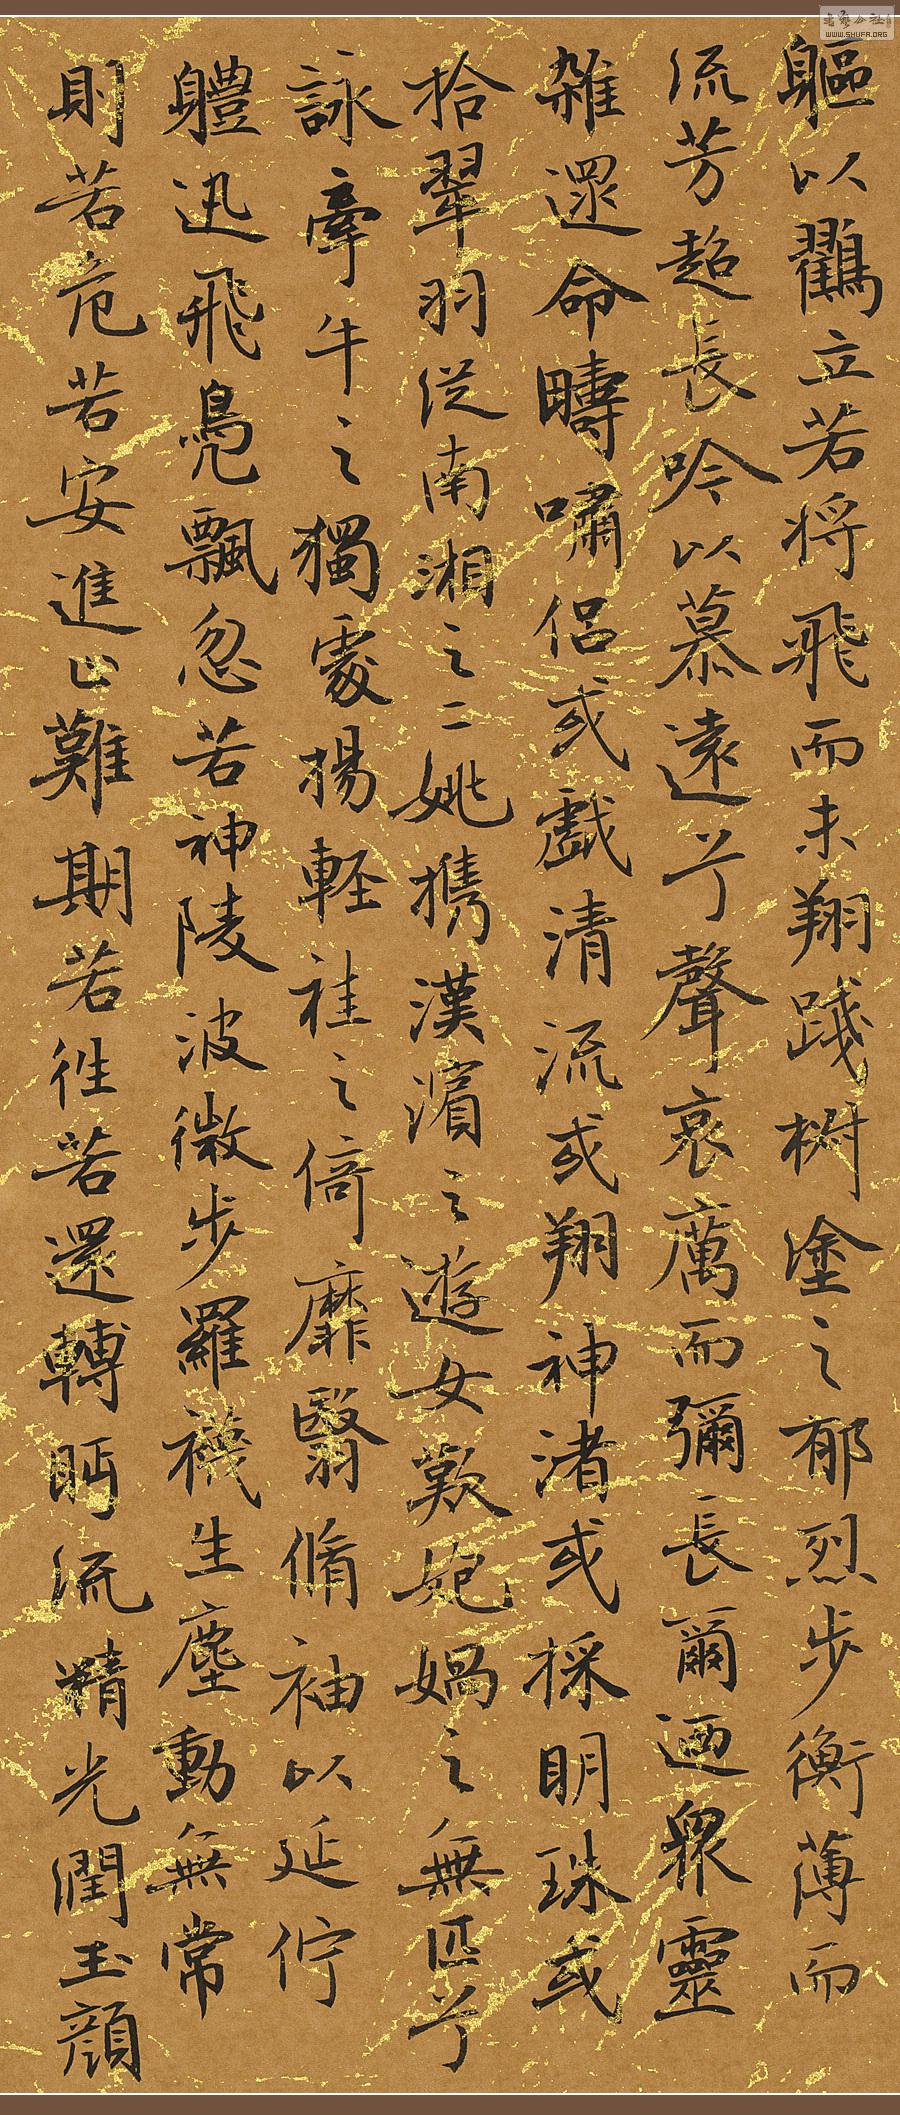 軀以鶴立若将飛而未翔踐樹塗之郁烈步衡薄而
流芳超長吟以慕遠兮聲哀厲而彌長爾迺眾靈
雜遝命疇嘯侣或戲清流或翔神渚或採明珠或
拾翠羽從南湘之二姚攜漢濱之遊女歎匏媧之無匹兮
詠牽牛之獨處揚輕袿之倚靡翳脩袖以延佇
軆迅飛鳧飄忽若神陵波微步羅襪生塵動無常
則若危若安進止難期若往若還轉眄流精光潤玉顔
WWW.SHUFA.ORG